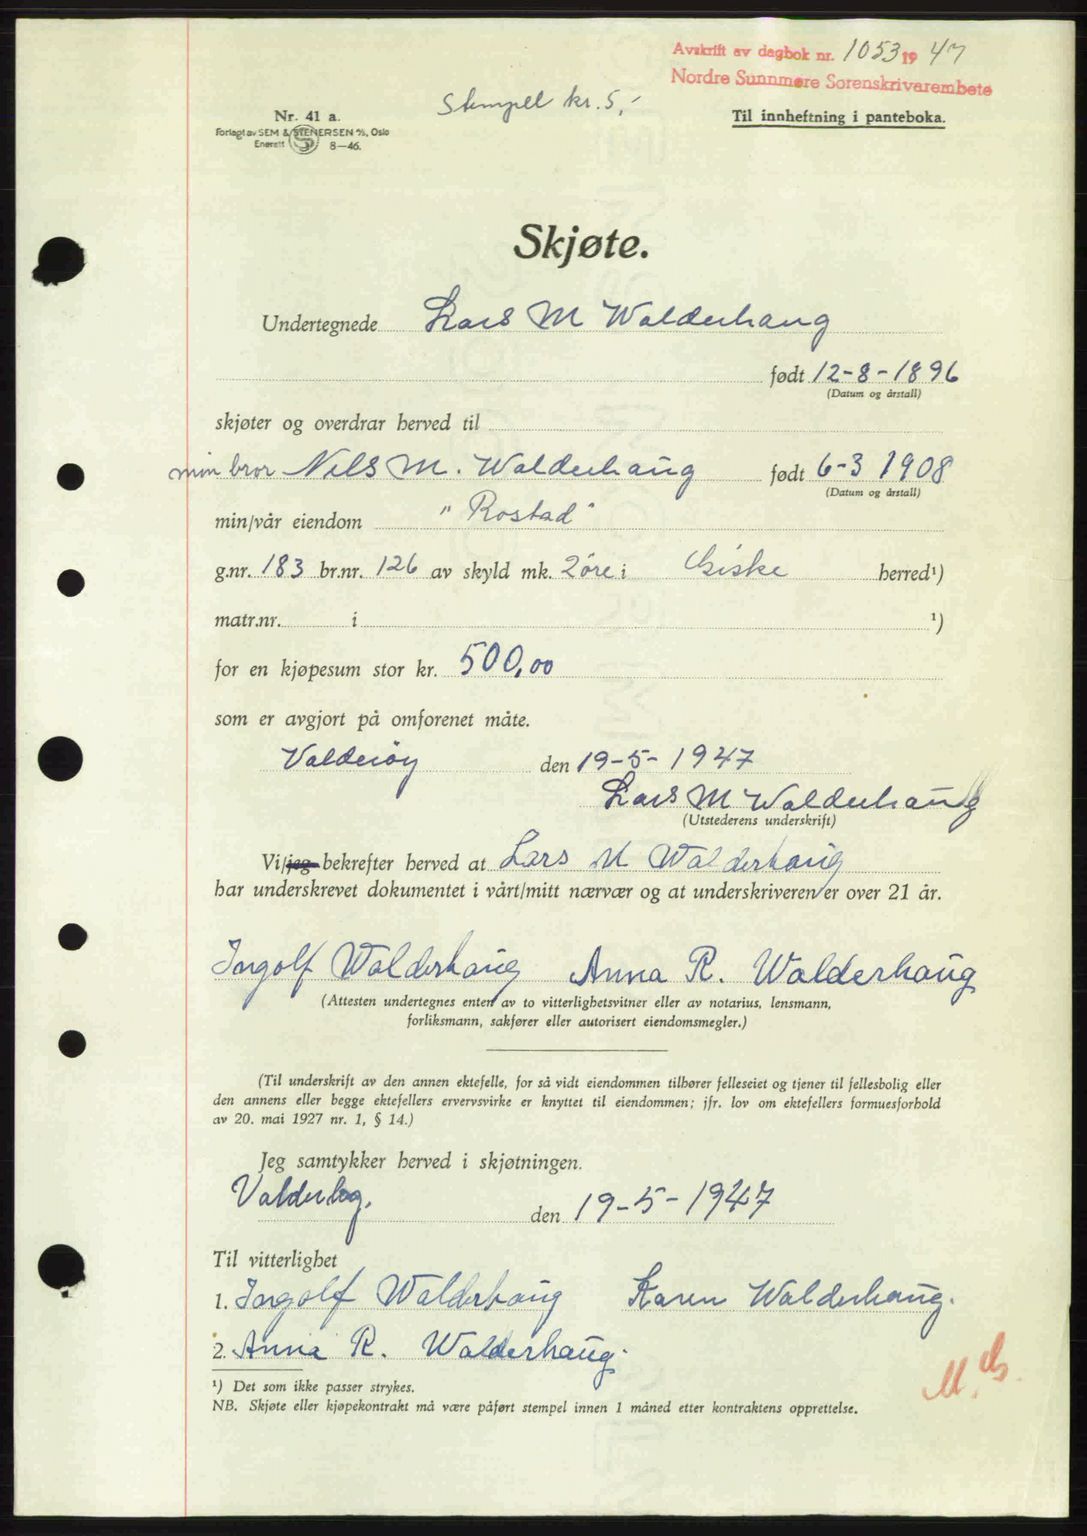 Avskrift av dagbok nr. 1053 19 47
Nordre Sunnmøre Sorenskrivarembete
Stempel kr. 5,-
Nr. 41 a.
Forlagt av SEM & STENERSEN A/S, Oslo
Enerett 8-46.
Til innheftning i panteboka.
Skjøte.
Undertegnede Lars M Walderhaug
født 12-8-1896
(Datum og årstall)
skjøter og overdrar herved til
min bror Nils M. Walderhaug født 6-3 1908
(Datum og årstall)
min/vår eiendom "Rostad"
g.nr. 183 br.nr. 126 av skyld mk. 2 øre i Giske herred¹)
matr.nr. i ¹)
for en kjøpesum stor kr. 500,00
som er avgjort på omforenet måte.
Valderöy den 19-5-1947
Lars M Walderhaug
(Utstederens underskrift)
Vi/jeg bekrefter herved at Lars M Walderhaug
har underskrevet dokumentet i vårt/mitt nærvær og at underskriveren er over 21 år.
Ingolf Walderhaug Anna R. Walderhaug
(Attesten undertegnes enten av to vitterlighetsvitner eller av notarius, lensmann,
forliksmann, sakfører eller autorisert eiendomsmegler.)
(Til underskrift av den annen ektefelle, for så vidt eiendommen tilhører felleseiet og tjener til fellesbolig eller
den annens eller begge ektefellers ervervsvirke er knyttet til eiendommen; jfr. lov om ektefellers formuesforhold
av 20. mai 1927 nr. 1, § 14.)
Jeg samtykker herved i skjøtningen.
den 19-5-1947
Til vitterlighet
1. Ingolf Walderhaug Karen Walderhaug.
2. Anna R. Walderhaug.
¹) Det som ikke passer strykes.
NB. Skjøte eller kjøpekontrakt må være påført stempel innen 1 måned etter kontraktens opprettelse.